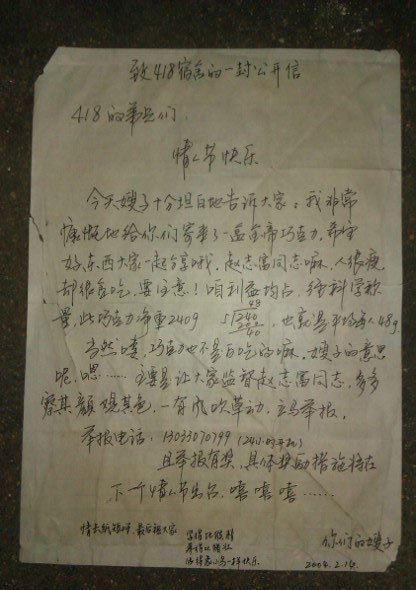 致418宿舍的一封公开信
418的弟兄们:
情人节快乐
今天嫂子十分坦白地告诉大家:我非常
慷慨地给你们寄来了一盒金帝巧克力,希望
好东西大家一起分享哦,赵志富同志嘛,人很瘦
却很贪吃,要注意!咱利益均占,经科学称
量,此巧克力净重240g 5)240 48 200 40 ,也就是平均每人48g
当然喽,巧克力也不是白吃的嘛,嫂子的意思
呢,嗯……主要是让大家监督赵志富同志,多多
察其颜观其色,一有风吹草动,立马举报,
举报电话:13033070799(24小时开机)
且举报有奖,具体奖励措施将在
下个情人节出台,嘻嘻嘻……
情长纸短 最后祝大家
一样快乐
你们的嫂子
2004.2.10